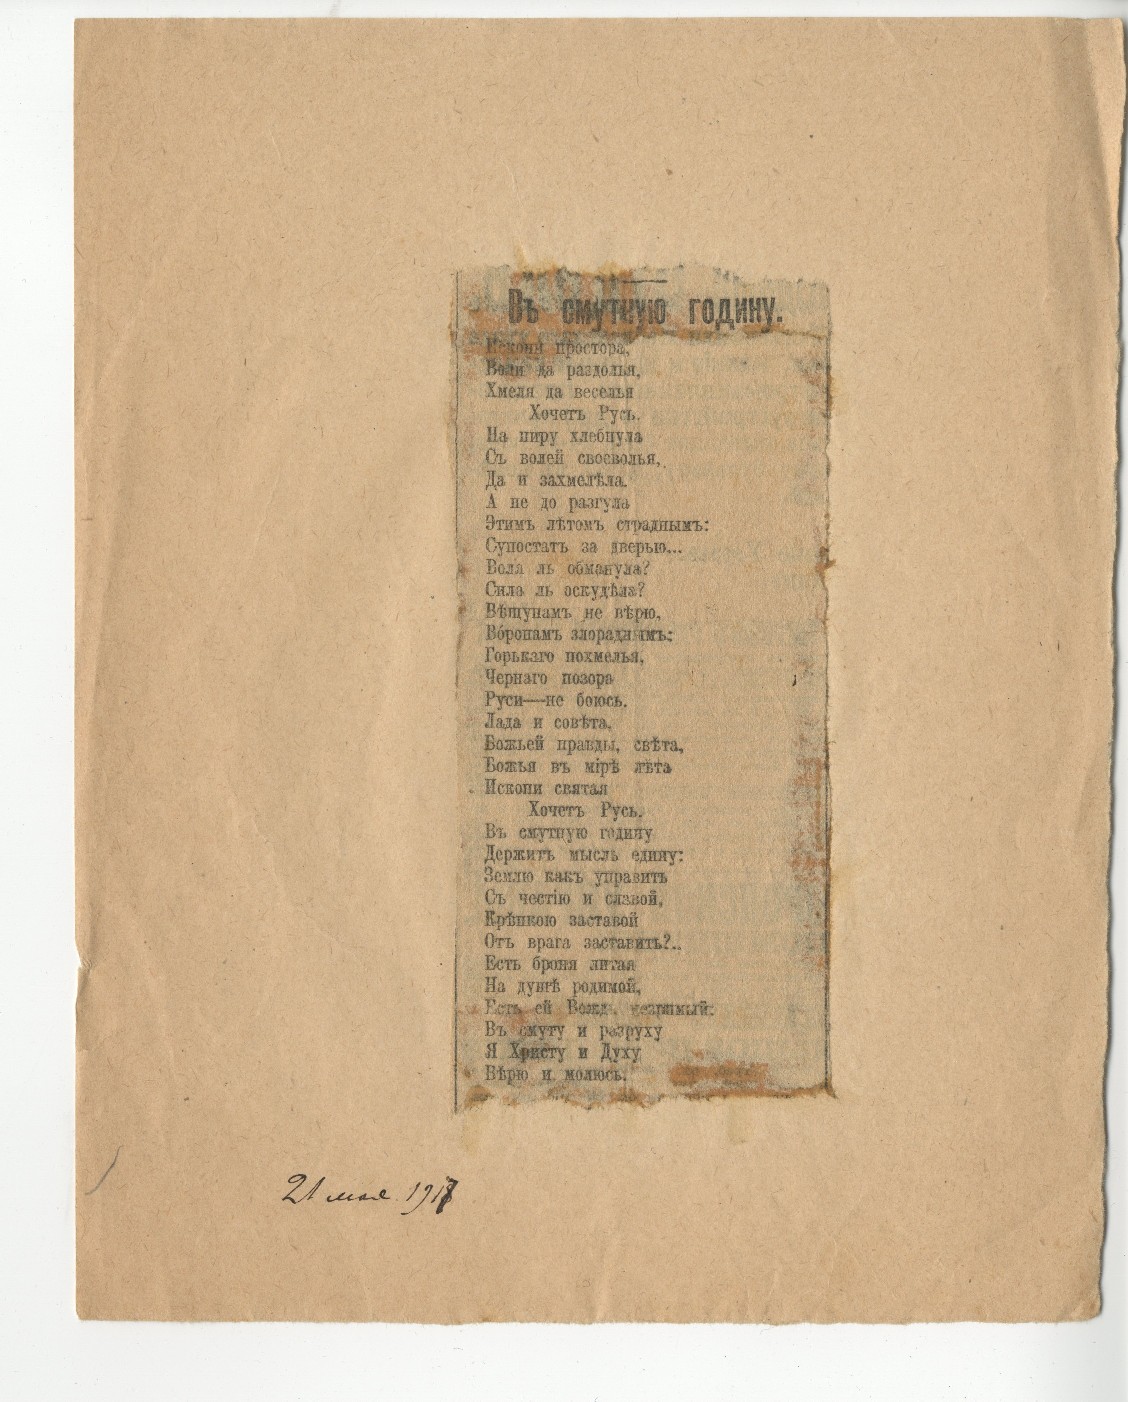 Въ смутную годину.
Искони простора,
Воли да раздолья,
Хмеля да веселья
Хочетъ Русь.
На пиру хлебнула
Съ волей своеволья,
Да и захмелѣла.
А не до разгула
Этимъ лѣтомъ страднымъ:
Супостатъ за дверью...
Воля ль обманула?
Сила ль оскудѣла?
Вѣщунамъ не вѣрю,
Во́ронамъ злораднымъ:
Горькаго похмелья,
Чернаго позора
Руси—не боюсь.
Лада и совѣта,
Божьей правды, свѣта,
Божья въ мірѣ лѣта
Искони святая
Хочетъ Русь.
Въ смутную годину
Держитъ мысль едину:
Землю какъ управить
Съ честію и славой,
Крѣпкою заставой
Отъ врага заставить?..
Есть броня литая
На душѣ родимой,
Есть ей Вождь незримый:
Въ смуту и разруху
Я Христу и Духу
Вѣрю и молюсь.
21 мая 1917